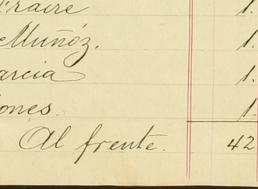 Fraire 1.
Muñóz. 1.
arcia 1.
ones. 1.
Al frente. 42